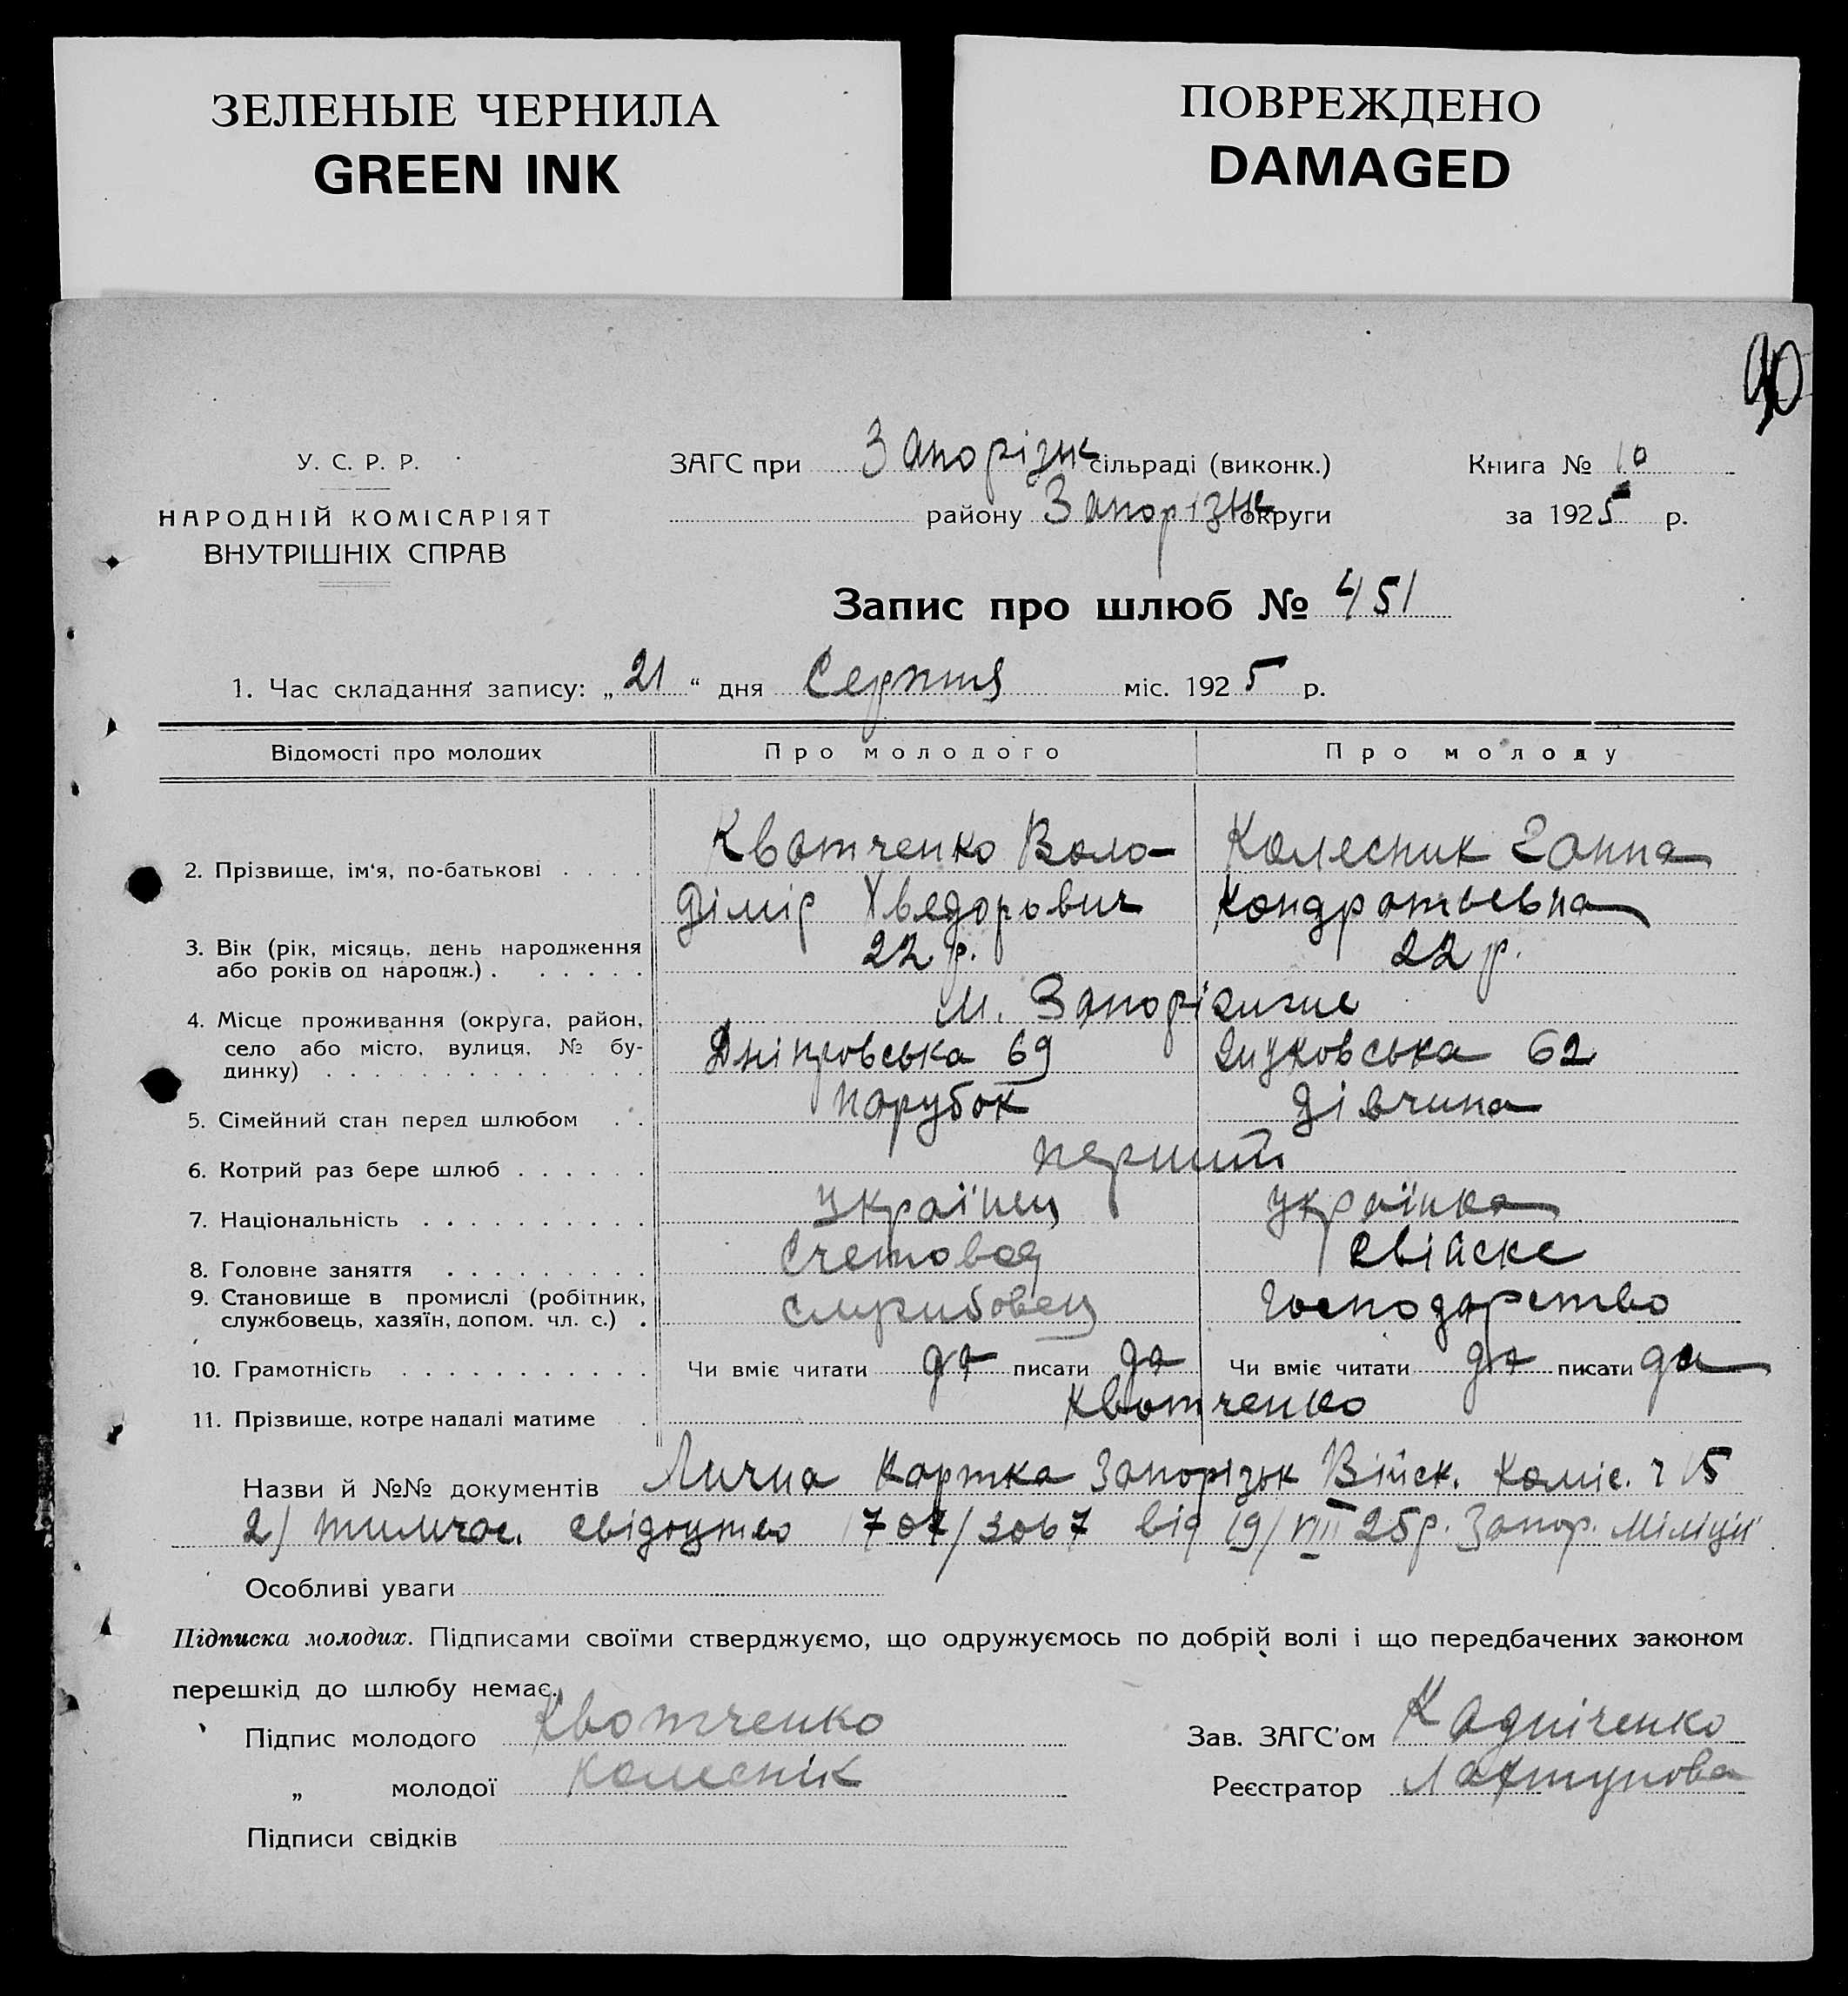 ЗЕЛЕНЫЕ ЧЕРНИЛА
GREEN INK
ПОВРЕЖДЕНО
DAMAGED
90
У. С. Р. Р.
НАРОДНІЙ КОМІСАРІЯТ
ВНУТРІШНІХ СПРАВ
ЗАГС при Запорізьк сільраді (виконк.)
району Запорізьк округи
Книга № 10
за 1925 р.
Запис про шлюб № 451
1. Час складання запису: „21“ дня Серпня міс. 1925 р.
Відомості про молодих Про молодого Про молоду
2. Прізвище, ім'я, по-батькові Квотченко Воло- Колесник Ганна
дімір Хведорович Кондратьевна
3. Вік (рік, місяць, день народження
або років од народж.) 22 р. 22 р.
4. Місце проживання (округа, район, м. Запоріжжє
село або місто, вулиця, № бу-
динку) Дніпровська 69 62
5. Сімейний стан перед шлюбом парубок дівчина
6. Котрий раз бере шлюб перший
7. Національність Українец українка
8. Головне заняття Счетовод свійске
9. Становище в промислі (робітник,
службовець, хазяїн, допом. чл. с.) господарство
10. Грамотність Чи вміє читати да писати да Чи вміє читати да писати да
11. Прізвище, котре надалі матиме Квотченко
Назви й №№ документів Лична картка Запорізьк Війск. Коміс. ч 15
2) тимчас. свідоцтво 1707/3067 від 19/VIII 25 р. Запор. Міліції
Особливі уваги
Підписка молодих. Підписами своїми стверджуємо, що одружуємось по добрій волі і що передбачених законом
перешкід до шлюбу немає.
Підпис молодого Квотченко
„ молодої Колеснік
Підписи свідків
Зав. ЗАГС'ом Кадніченко
Реєстратор